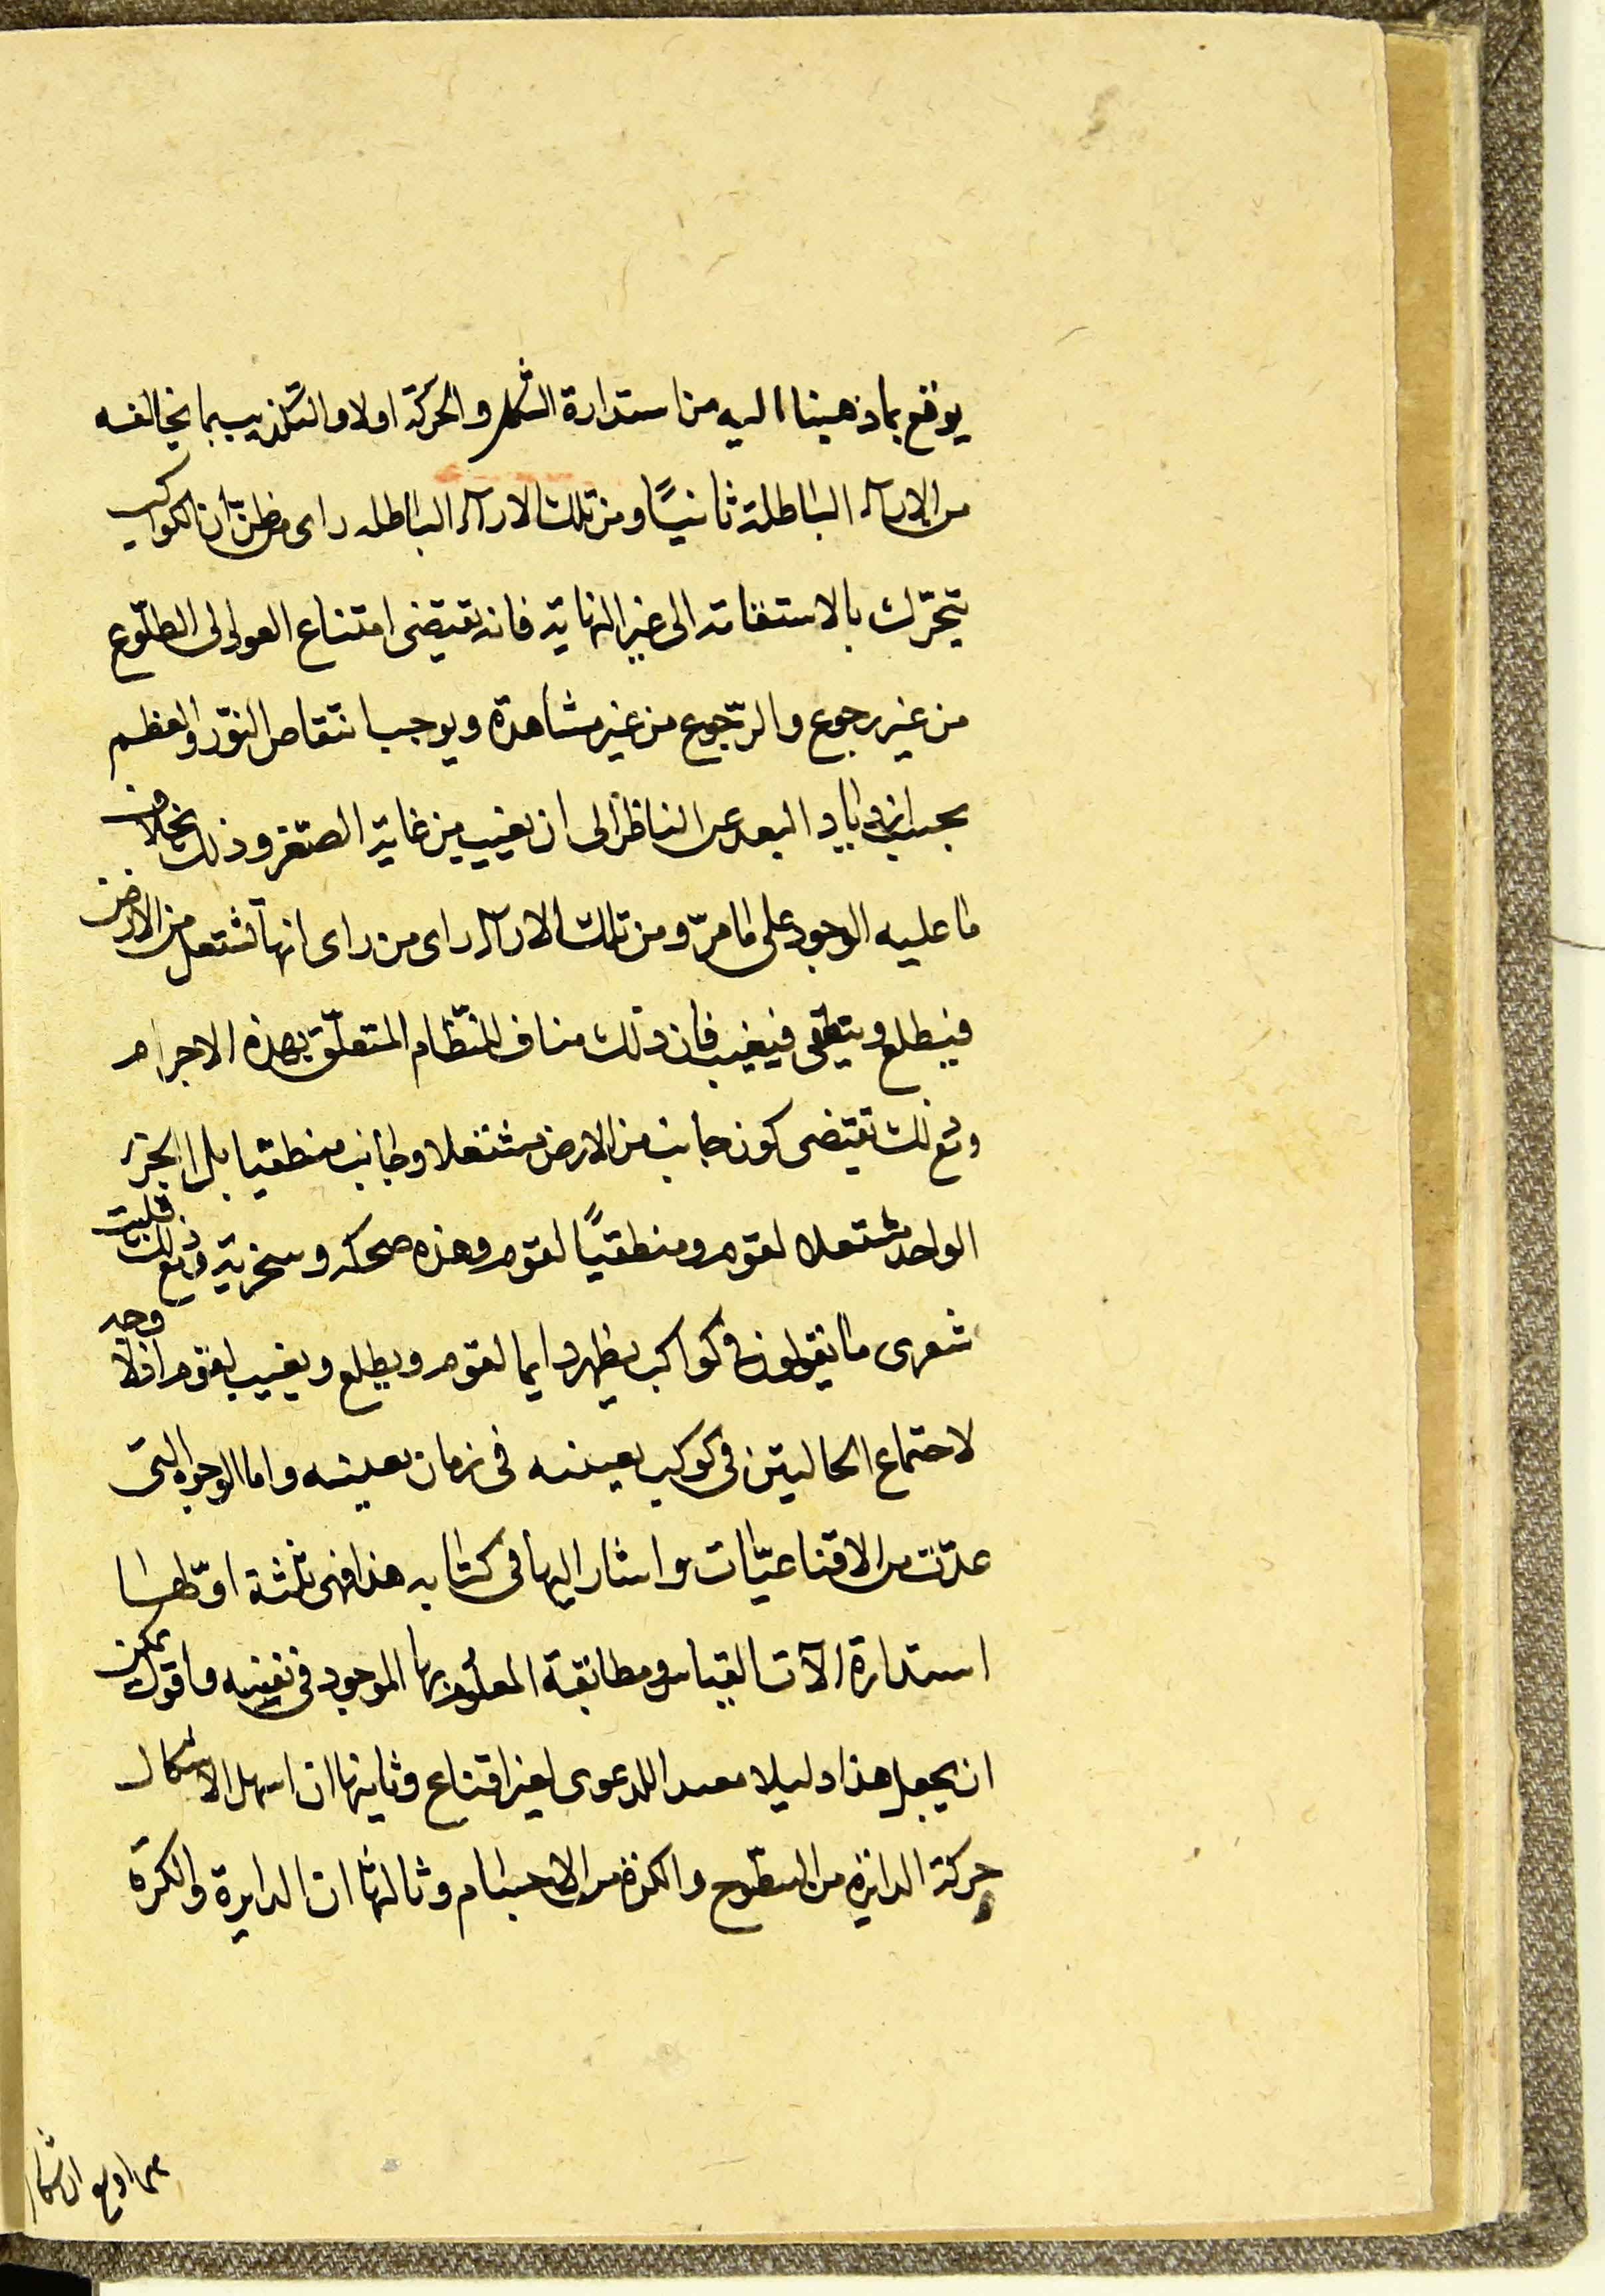 يوقع بما ذهبنا اليه من استدارة الشكل والحركة اولا والتكذيب بما يخالفه
من الاراء الباطلة ثانيًا ومن تلك الاراء الباطله راى من ظن ان الكواكب
يتحرّك بالاستقامة الى غير النهاية فانه يقتضى امتناع العود الى الطلوع
من غير رجوع والرّجوع من غير مشاهدة ويوجب انتقاص النوّر والعظم
بحسب ازدياد البعد عن الناظر الى ان يغيب من غاية الصّغر وذلك بخلاف
ما عليه الوجود على ما مرّ ومن تلك الاراء راى من راى انها تشتعل من الارض
فيطلع وينطفى فيغيب فان ذلك مناف للنّظام المتعلّق بهذه الاجرام
ومع ذلك يقتضى كون جانب من الارض مشتعلا وجانب منطفيا بل الجزء
الواحد مشتعلا لقوم ومنطفيًا لقوم وهذه ضحكه وسخرية ومع ذلك فليت
شعرى ما يقولون فى كواكب يظهر دايما لقوم ويطلع ويغيب لقوم اذ لا وجه
لاجتماع الحالتين فى كوكب بعينه فى زمان بعينه واما الوجوه التى
عدّت من الاقناعيّات واشار اليها فى كتابه هذا فهى ثلثة اوّلها
استدارة الآت القياس ومطابقة المعلوم بها الموجود فى نفسه واقول يمكن
ان يجعل هذا دليلا مفيدا للدعوى لغير اقناع وثانيها ان اسهل الاشكال
حركة الدايرة من السطوح والكرة من الاجسام وثالثها ان الدايرة والكرة